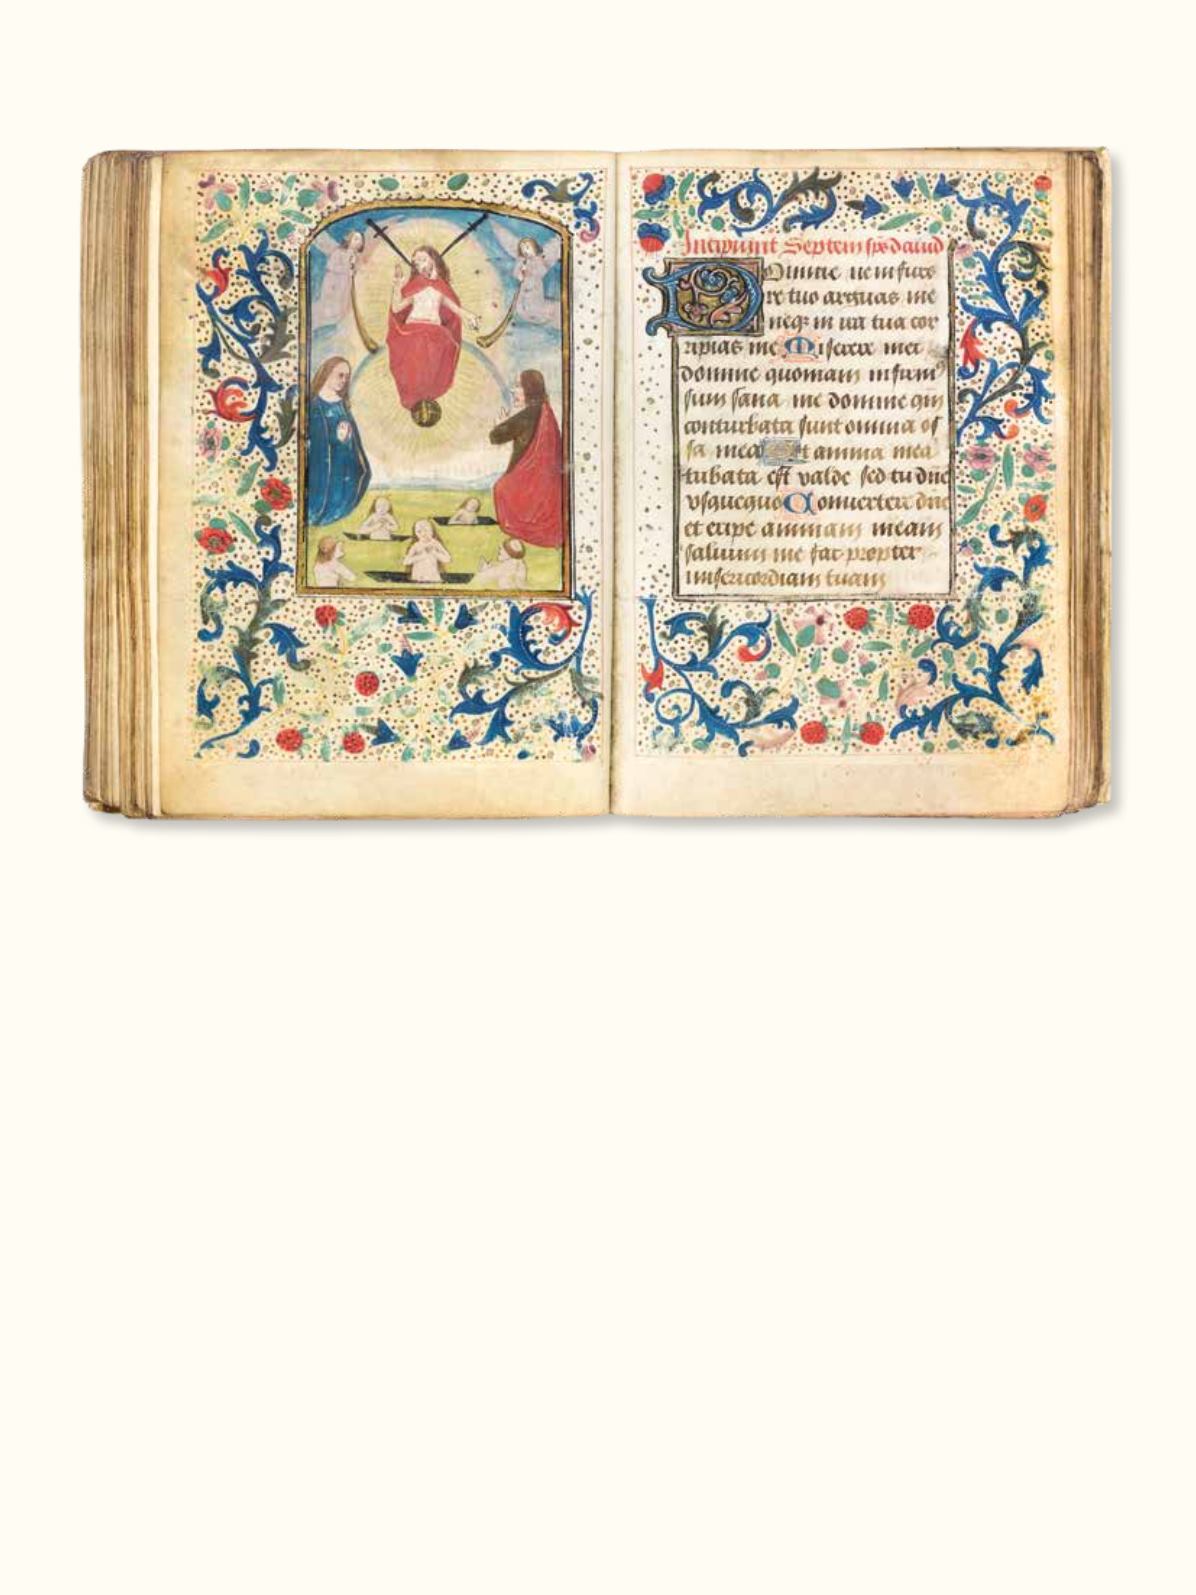 Incipiunt Septem ps dauid
Domine ne in furo
re tuo arguas me
neq in ira tua cor
ripias me Miserere mei
domine quoniam infirmꝰ
sum sana me domine qm̄
conturbata sunt omnia os
sa mea Et anima mea
tubata est valde sed tu dn̄e
vsquequo Conuertere dn̄e
et eripe animam meam
saluum me fac propter
misericordiam tuam